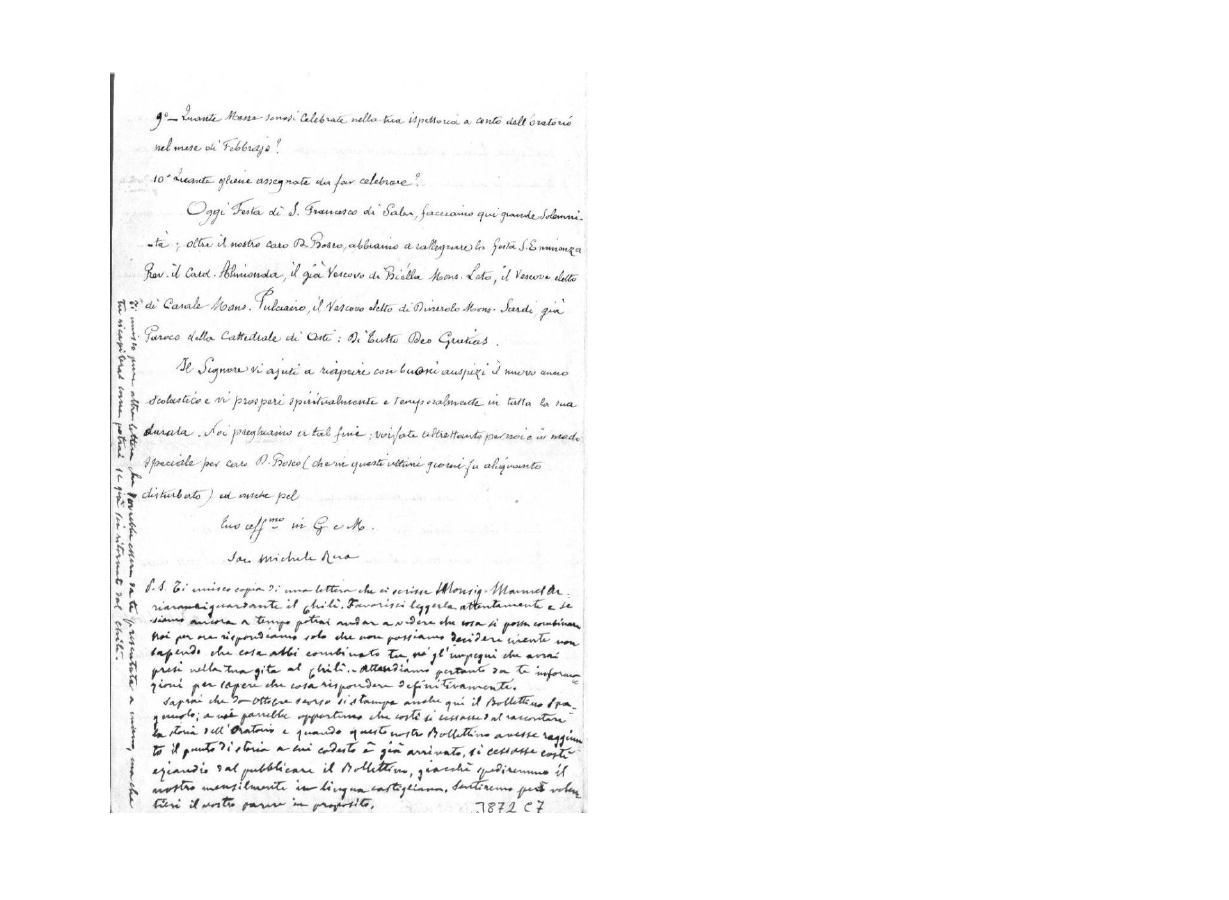 9º— Quante Messe sonosi celebrate nella tua ispettoria a conto dell'Oratorio
nel mese di Febbrajo?
10º Quante gliene assegnate da far celebrare?
Oggi Festa di S. Francesco di Sales, facciamo qui grande solenni-
-tà; oltre il nostro caro D. Bosco, abbiamo a rallegrare la festa S. Eminenza
Rev. il Card. Alimonda, il già Vescovo di Biella Mons. Leto, il Vescovo eletto
di Casale Mons. Pulciano, il Vescovo eletto di Pinerolo Mons. Sardi già
Paroco della Cattedrale di Asti: Di tutto Deo Gratias.
Il Signore vi ajuti a riaprire con buoni auspizi il nuovo anno
scolastico e vi prosperi spiritualmente e temporalmente in tutta la sua
durata. Noi preghiamo a tal fine; voi fate altrettanto per noi e in modo
speciale per caro D. Bosco (che in questi ultimi giorni fu alquanto
disturbato) ed anche pel
Tuo aff.mo in G. e M.
Sac. Michele Rua
P.S. Ti unisco copia di una lettera che ci scrisse Monsig. Manuel
riguardante il Chilì. Favorisci leggerla attentamente e se
siamo ancora a tempo potrai andar a vedere che cosa si possa combinare
Noi per ora rispondiamo solo che non possiamo decidere niente non
sapendo che cosa abbi combinato tu, nè gl'impegni che avrai
presi nella tua gita al Chilì. Attendiamo pertanto da te informa-
zioni per sapere che cosa rispondere definitivamente.
Saprai che da Ottobre scorso si stampa anche qui il Bollettino Spa-
gnuolo; a noi parrebbe opportuno che costì si cessasse dal raccontare
la storia dell'Oratorio e quando questo nostro Bollettino avesse raggiun
to il punto di storia a cui codesto è già arrivato, si cessasse costì
eziandio dal pubblicare il Bollettino, giacchè spediremmo il
nostro mensilmente in lingua castigliana. Sentiremo però volen
tieri il vostro parere in proposito.
3872 C7
Ti unisco pure altra lettera che dovrebbe essere da te presentata a mano, ma che
tu ricapiterai come potrai se già sii ritornato dal Chilì.